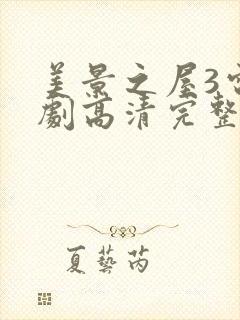 美景之屋3电
劇高清完整
夏藝芮